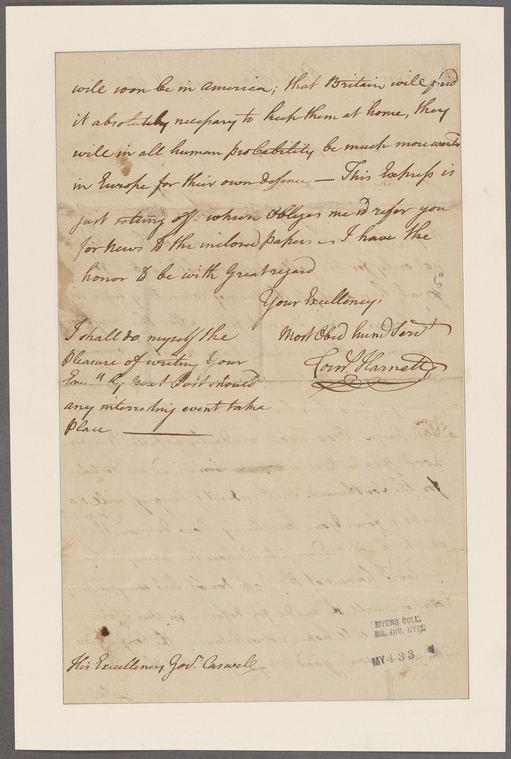 will soon be in America; that Britain will find
it absolutely necessary to keep them at home, they
will in all human probability be much more wanted
in Europe for their own Defence — This Express is
just setting off which obliges me to refer you
for News to the inclosed papers — I have the
honor to be with Great regard
Your Excellency,
Most Obed humb Servt
Corn. Harnett
I shall do myself the
Pleasure of writing Your
Excy by next Post should
any interesting event take
Place
MYERS COLL.
MS. DIV. NYPL
MY 433
His Excellency Govr. Caswell